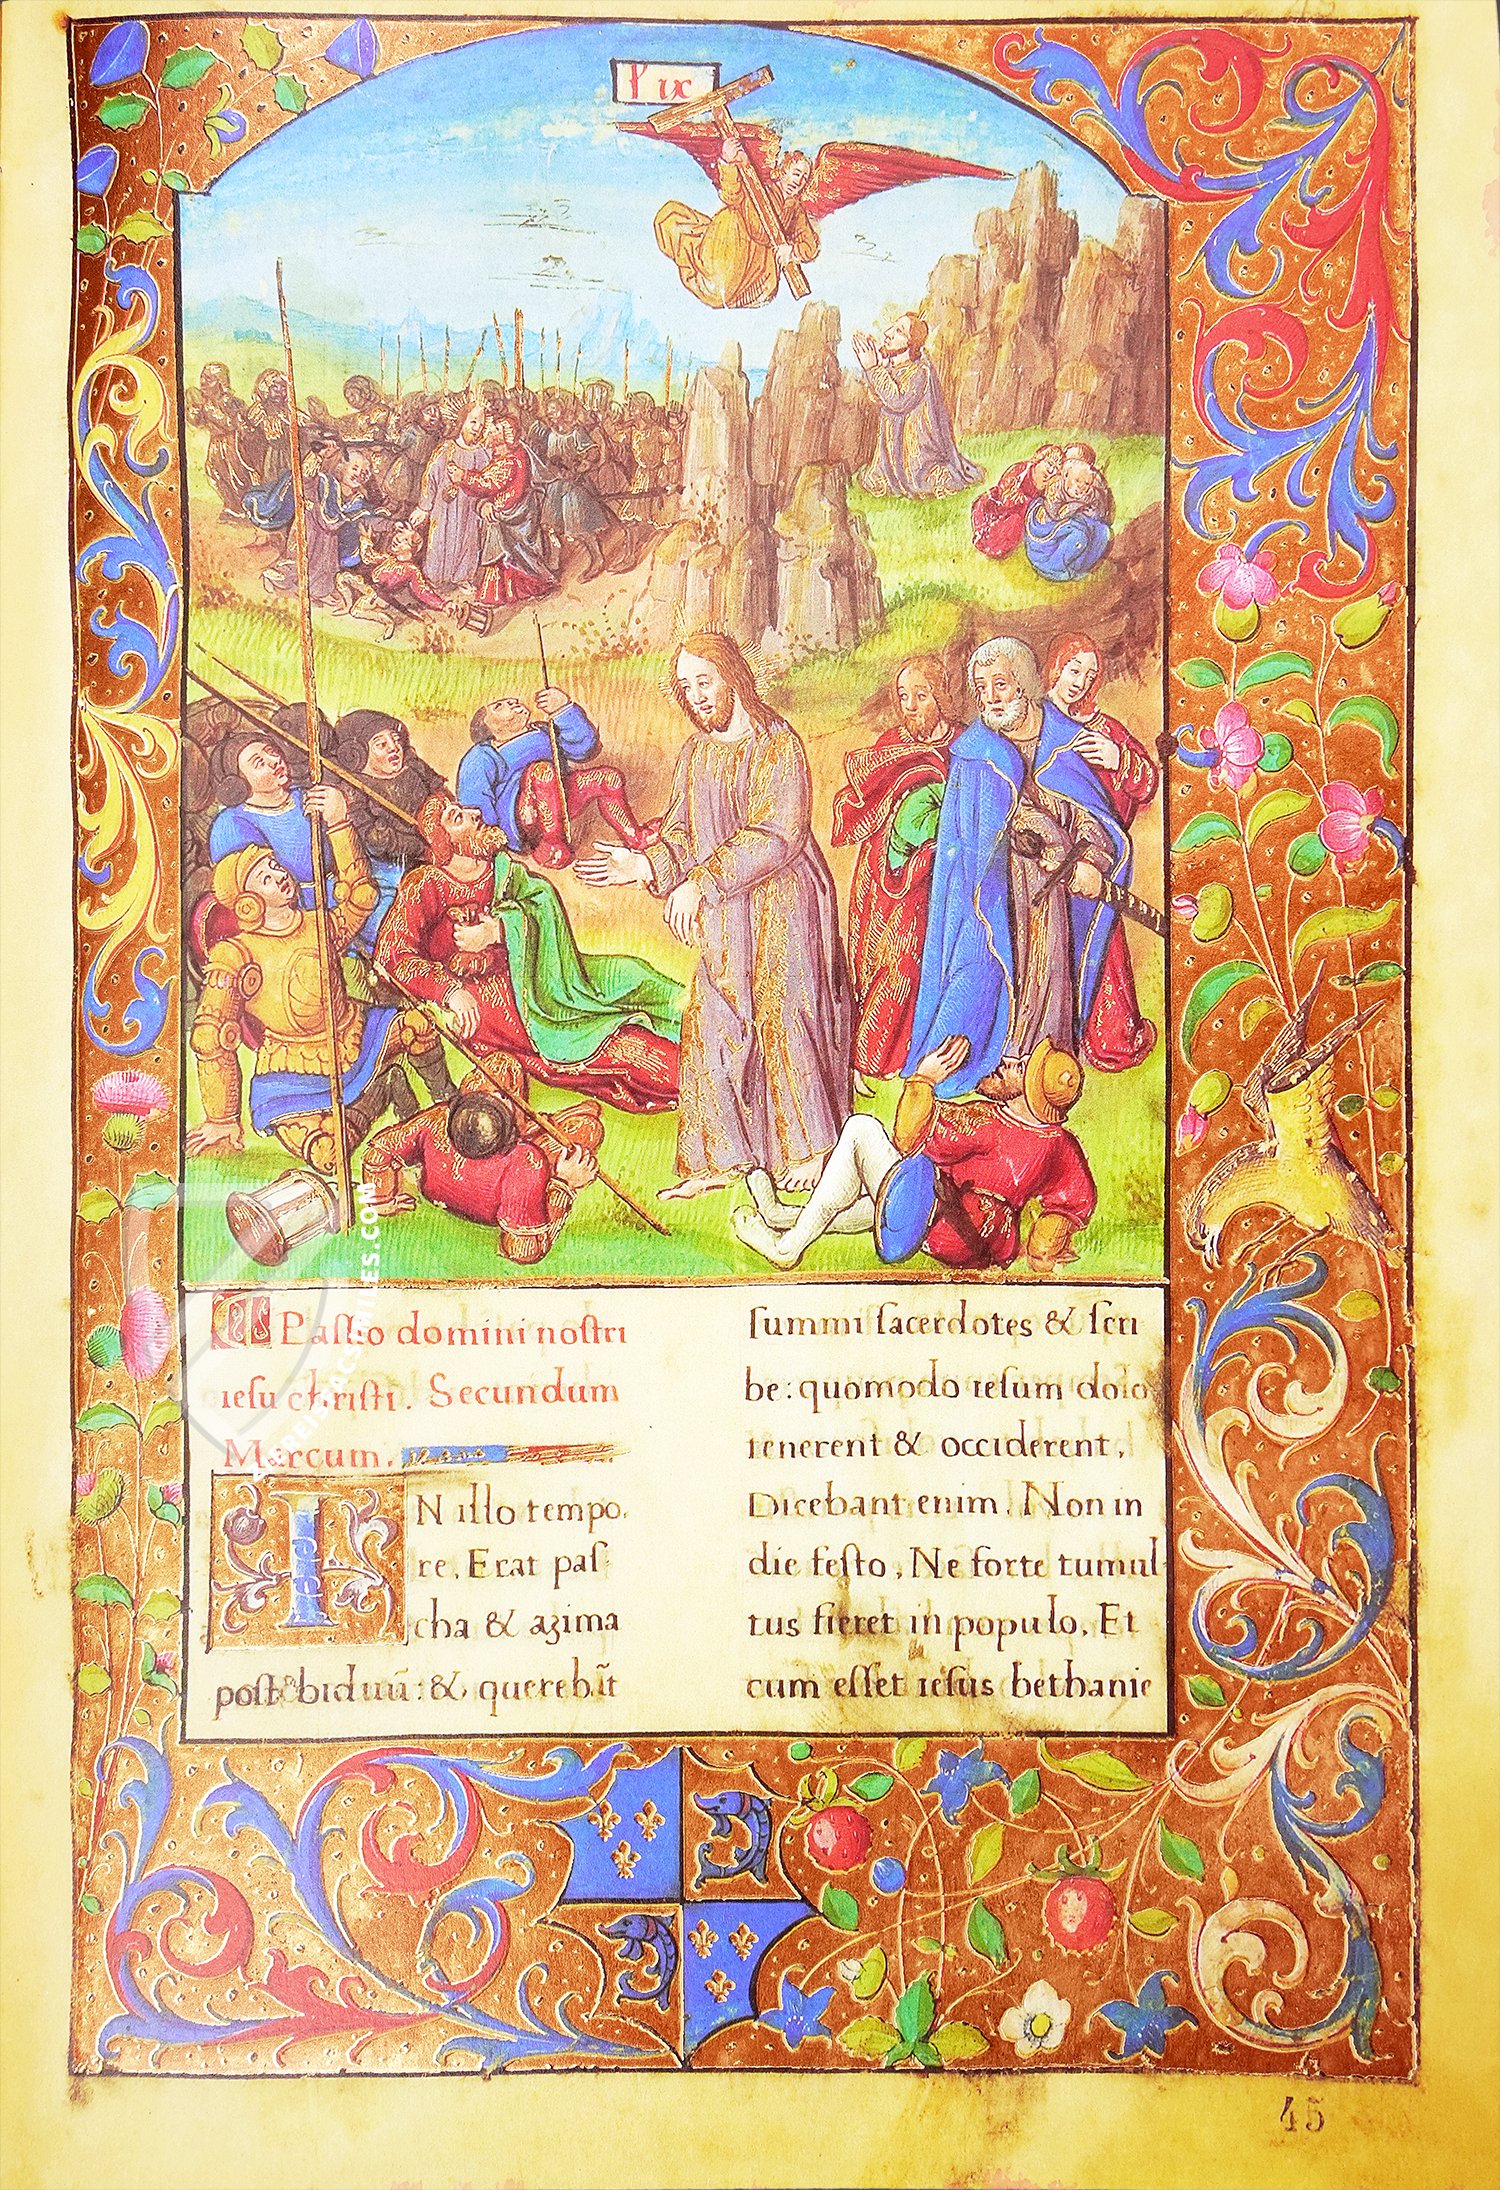 P ix
Passio domini nostri
iesu christi. Secundum
Marcum.
IN illo tempo.
re. Erat pas
cha & azima
post biduū: & querebāt
summi sacerdotes & scri
be: quomodo iesum dolo
tenerent & occiderent.
Dicebant enim. Non in
die festo, Ne forte tumul
tus fieret in populo. Et
cum esset iesus bethanie
45